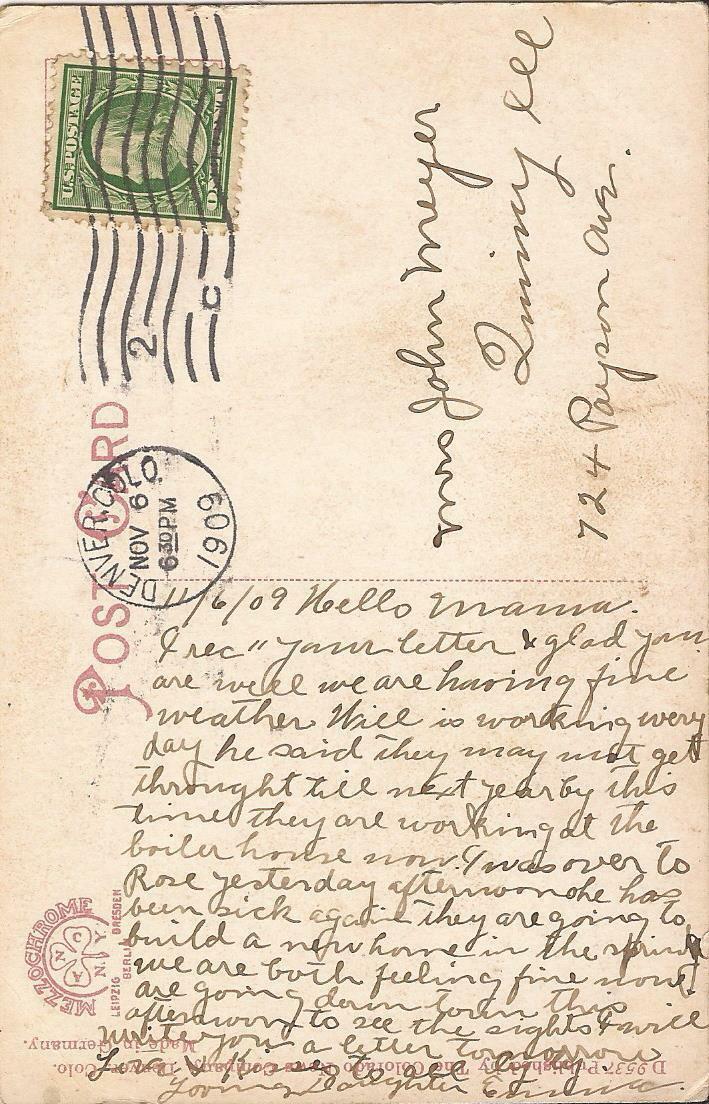 U.S. POSTAGE
2 C
POST CARD
DENVER, COLO.
NOV 6
6 30 PM
1909
Mrs John Meyer
Quincy Ill
724 Payson Ave.
11/6/09 Hello Mama.
I rec" your letter & glad you
are well we are having fine
weather Will is working every
day he said they may not get
throught till next year by this
time they are working at the
boiler house now. I was over to
Rose yesterday afternoon she has
been sick again they are going to
build a new home in the spring
we are both feeling fine now
are going down town this
afternoon to see the sights & will
write you a letter tomorrow
Love & Kisses to all
Loving Daughter Emma.
MEZZOCHROME
A.N.C.
N.Y.
LEIPZIG BERLIN DRESDEN
D 9537 Published by The Colorado News Company, Denver, Colo.
Made in Germany.